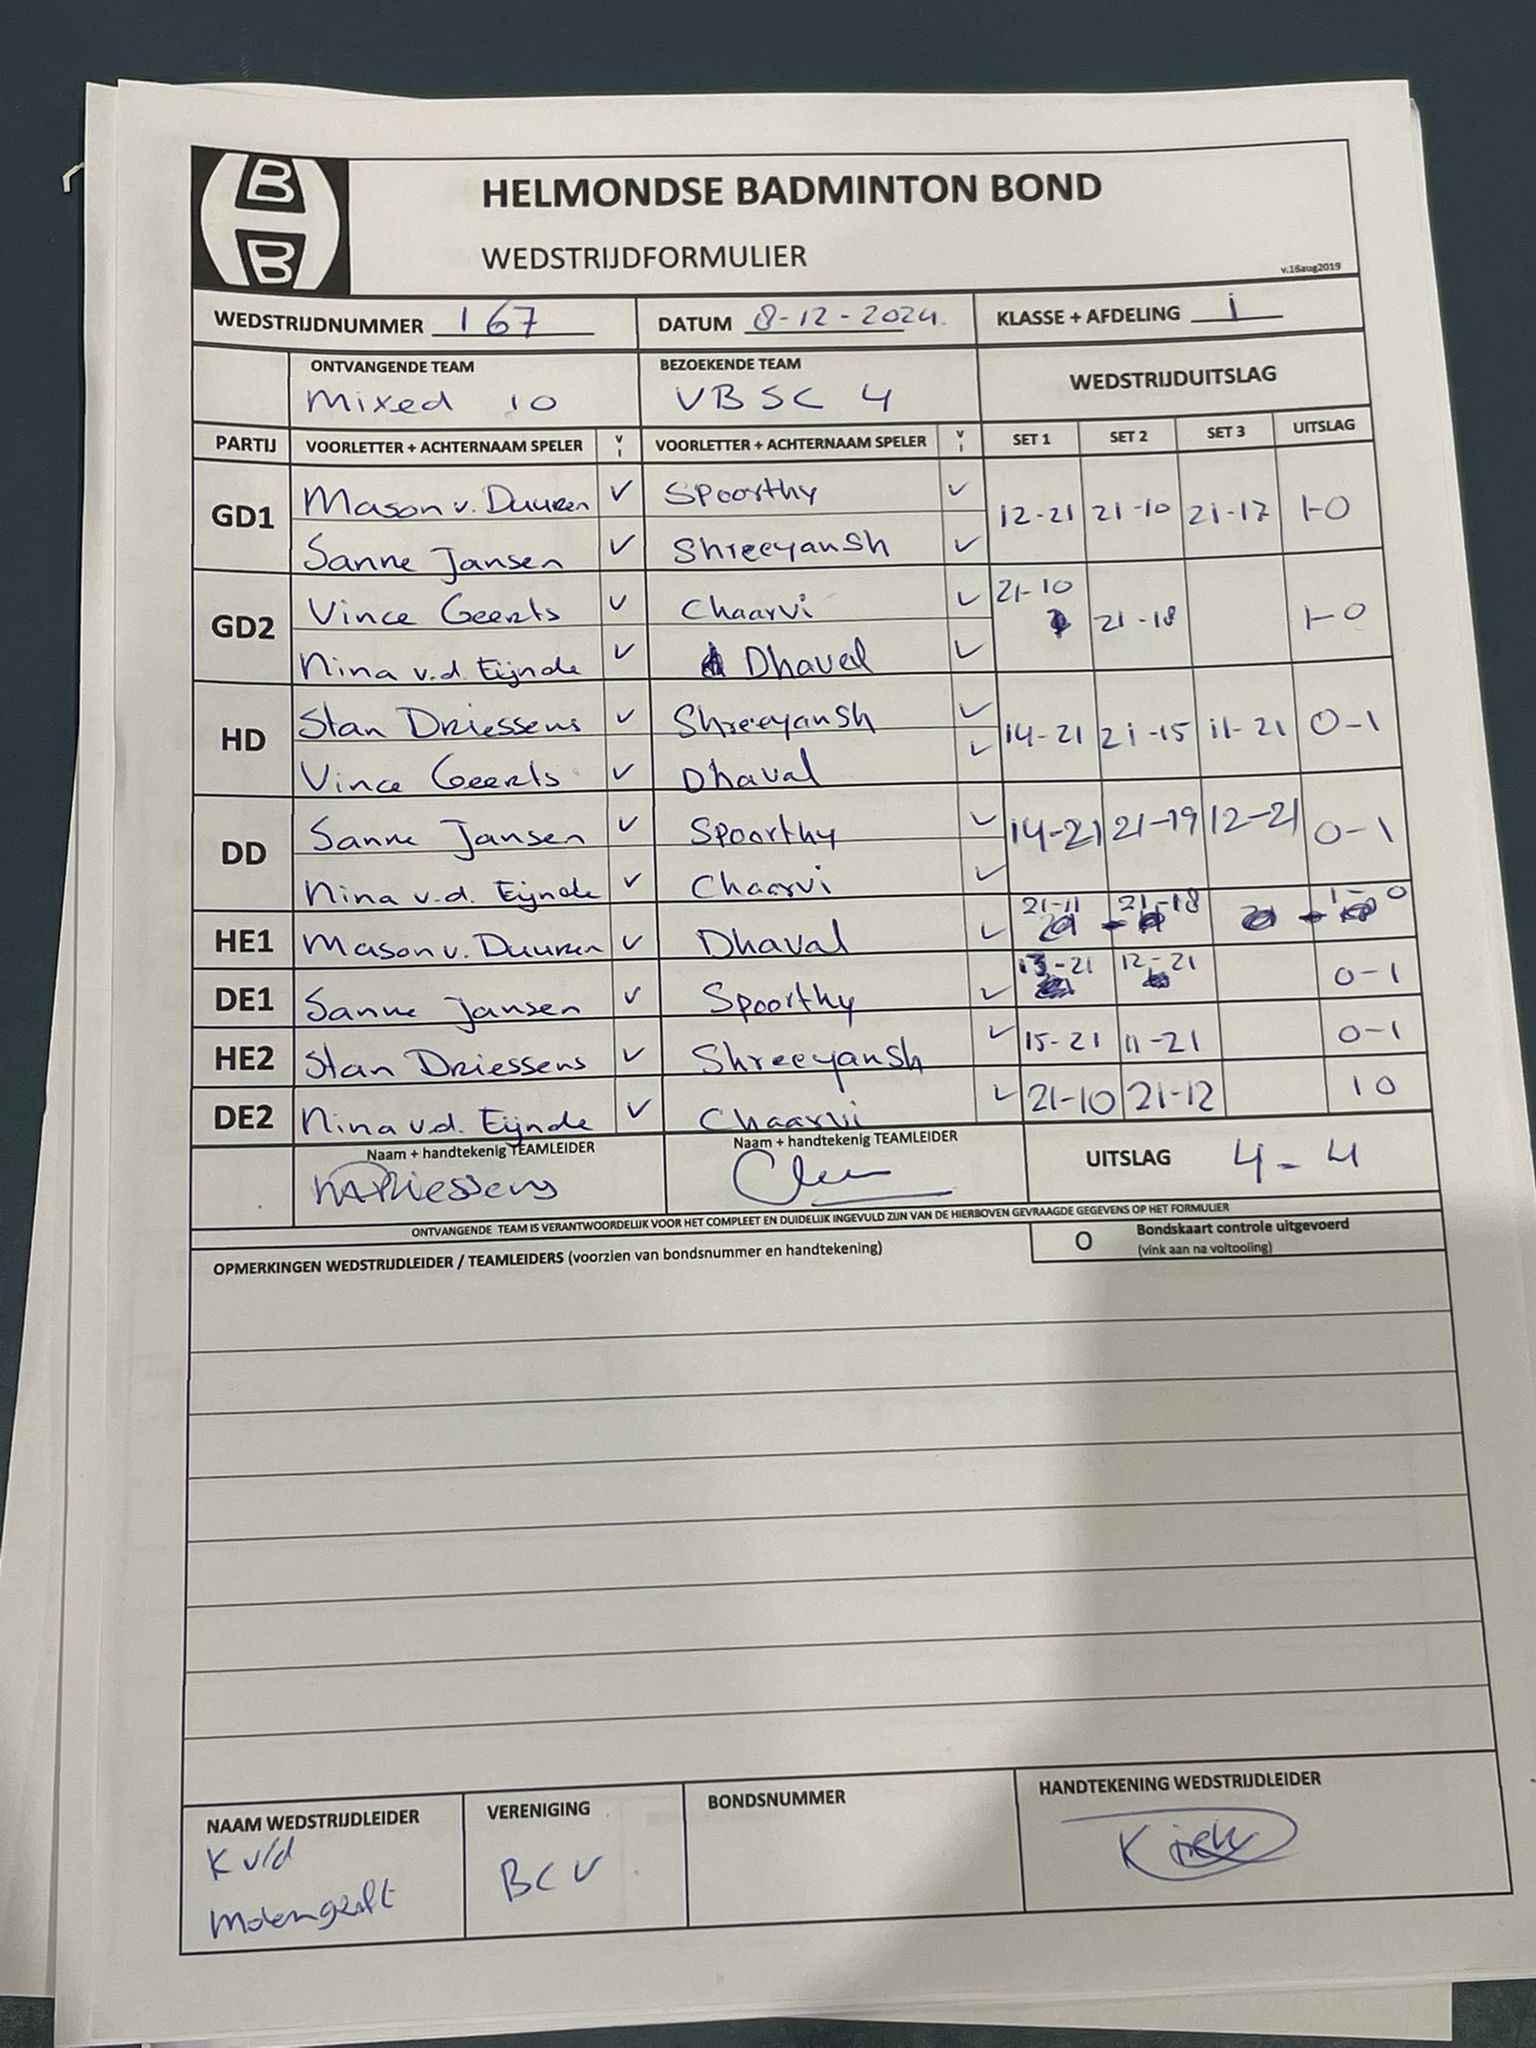 B
B
HELMONDSE BADMINTON BOND
WEDSTRIJDFORMULIER
v.16aug2019
WEDSTRIJDNUMMER 167 DATUM 8-12-2024. KLASSE + AFDELING i
ONTVANGENDE TEAM BEZOEKENDE TEAM WEDSTRIJDUITSLAG
Mixed 10 VBSC 4
PARTIJ VOORLETTER + ACHTERNAAM SPELER V I VOORLETTER + ACHTERNAAM SPELER V I SET 1 SET 2 SET 3 UITSLAG
GD1 Mason v. Duuren ✓ Spoorthy ✓ 12-21 21-10 21-17 1-0
Sanne Jansen ✓ Shreeyansh ✓
GD2 Vince Geerts ✓ Chaarvi ✓ 21-10 21-18 1-0
Nina v.d. Eijnde ✓ Dhaval ✓
HD Stan Driessens ✓ Shreeyansh ✓ 14-21 21-15 11-21 0-1
Vince Geerts ✓ Dhaval ✓
DD Sanne Jansen ✓ Spoorthy ✓ 14-21 21-19 12-21 0-1
Nina v.d. Eijnde ✓ Chaarvi ✓
HE1 Mason v. Duuren ✓ Dhaval ✓ 21-11 21-18 1-0
DE1 Sanne Jansen ✓ Spoorthy ✓ 13-21 12-21 0-1
HE2 Stan Driessens ✓ Shreeyansh ✓ 15-21 11-21 0-1
DE2 Nina v.d. Eijnde ✓ Chaarvi ✓ 21-10 21-12 1 0
Naam + handtekenig TEAMLEIDER Naam + handtekenig TEAMLEIDER UITSLAG 4-4
ONTVANGENDE TEAM IS VERANTWOORDELIJK VOOR HET COMPLEET EN DUIDELIJK INGEVULD ZIJN VAN DE HIERBOVEN GEVRAAGDE GEGEVENS OP HET FORMULIER
OPMERKINGEN WEDSTRIJDLEIDER / TEAMLEIDERS (voorzien van bondsnummer en handtekening) O Bondskaart controle uitgevoerd
(vink aan na voltooling)
NAAM WEDSTRIJDLEIDER VERENIGING BONDSNUMMER HANDTEKENING WEDSTRIJDLEIDER
K v/d BCV